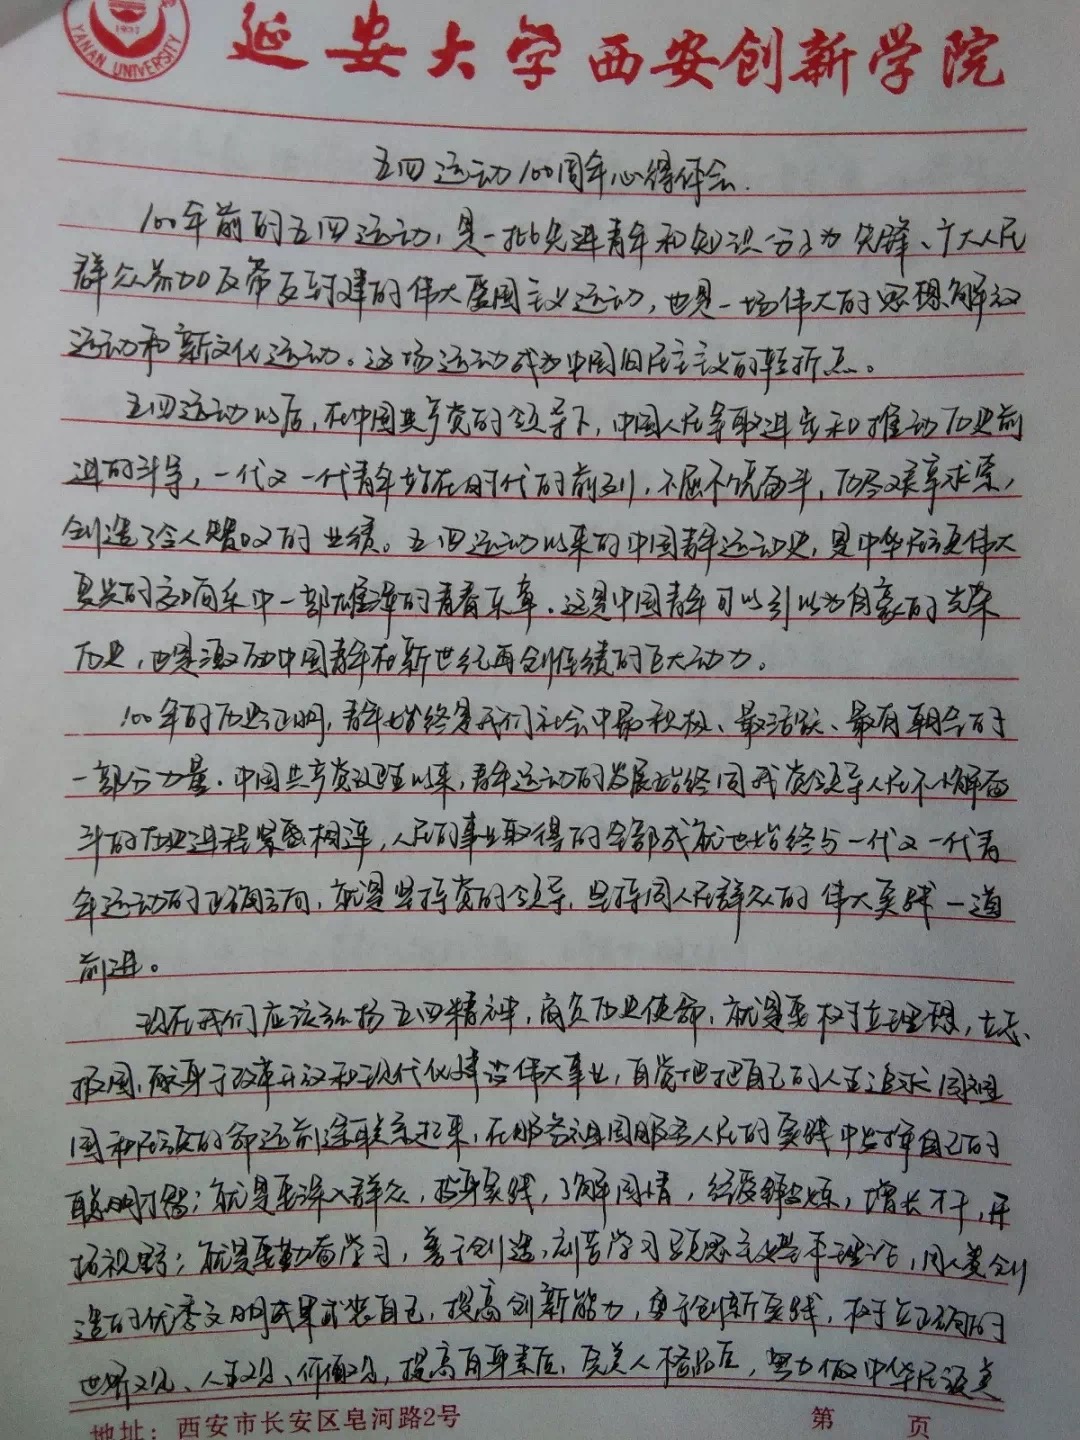 YANAN UNIVERSITY
1937
延安大学西安创新学院
五四运动100周年心得体会.
100年前的五四运动,是一批先进青年和知识分子为先锋、广大人民
群众参加反帝反封建的伟大爱国主义运动,也是一场伟大的思想解放
运动和新文化运动。这场运动成为中国旧民主主义的转折点。
五四运动以后,在中国共产党的领导下,中国人民争取进步和推动历史前
进的斗争,一代又一代青年站在时代的前列,不屈不饶奋斗,历尽艰辛求索,
创造了令人赞叹的业绩。五四运动以来的中国青年运动史,是中华民族伟大
复兴的交响乐中一部雄浑的青春乐章.这是中国青年可以引以为自豪的光荣
历史,也是激励中国青年在新世纪再创佳绩的巨大动力。
100年的历史证明,青年始终是我们社会中最积极、最活跃、最有朝气的
一部分力量.中国共产党建立以来,青年运动的发展始终同我党领导人民不懈奋
斗的历史进程紧密相连,人民的事业取得的全部成就也始终与一代又一代青
年运动的正确方向,就是坚持党的领导,坚持同人民群众的伟大实践一道
前进。
现在我们应该弘扬五四精神,肩负历史使命,就是要树立理想,立志
报国,献身于改革开放和现代化建设伟大事业,自觉地把自己的人生追求同祖
国和民族的命运前途联系起来,在服务祖国服务人民的实践中发挥自己的
聪明才智;就是要深入群众,投身实践,了解国情,经受锻炼,增长才干,开
拓视野;就是要勤奋学习,善于创造,刻苦学习马克思主义基本理论,用人类创
造的优秀文明成果武装自己,提高创新能力,勇于创新实践,树立正确的
世界观、人生观、价值观,提高自身素质、完美人格品质,努力做中华民族美
地址:西安市长安区皂河路2号
第 页